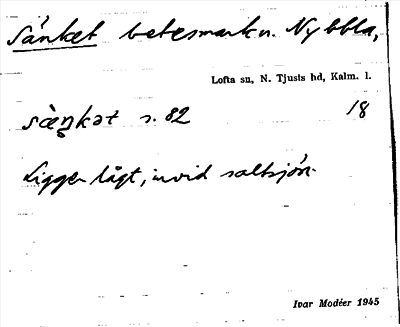 Sänket betesmark n. Nybbla,
Lofta sn, N. Tjusts hd, Kalm. l.
sæ̀ŋkət s. 82 18
Ligger lågt, invid saltsjön.
Ivar Modéer 1945